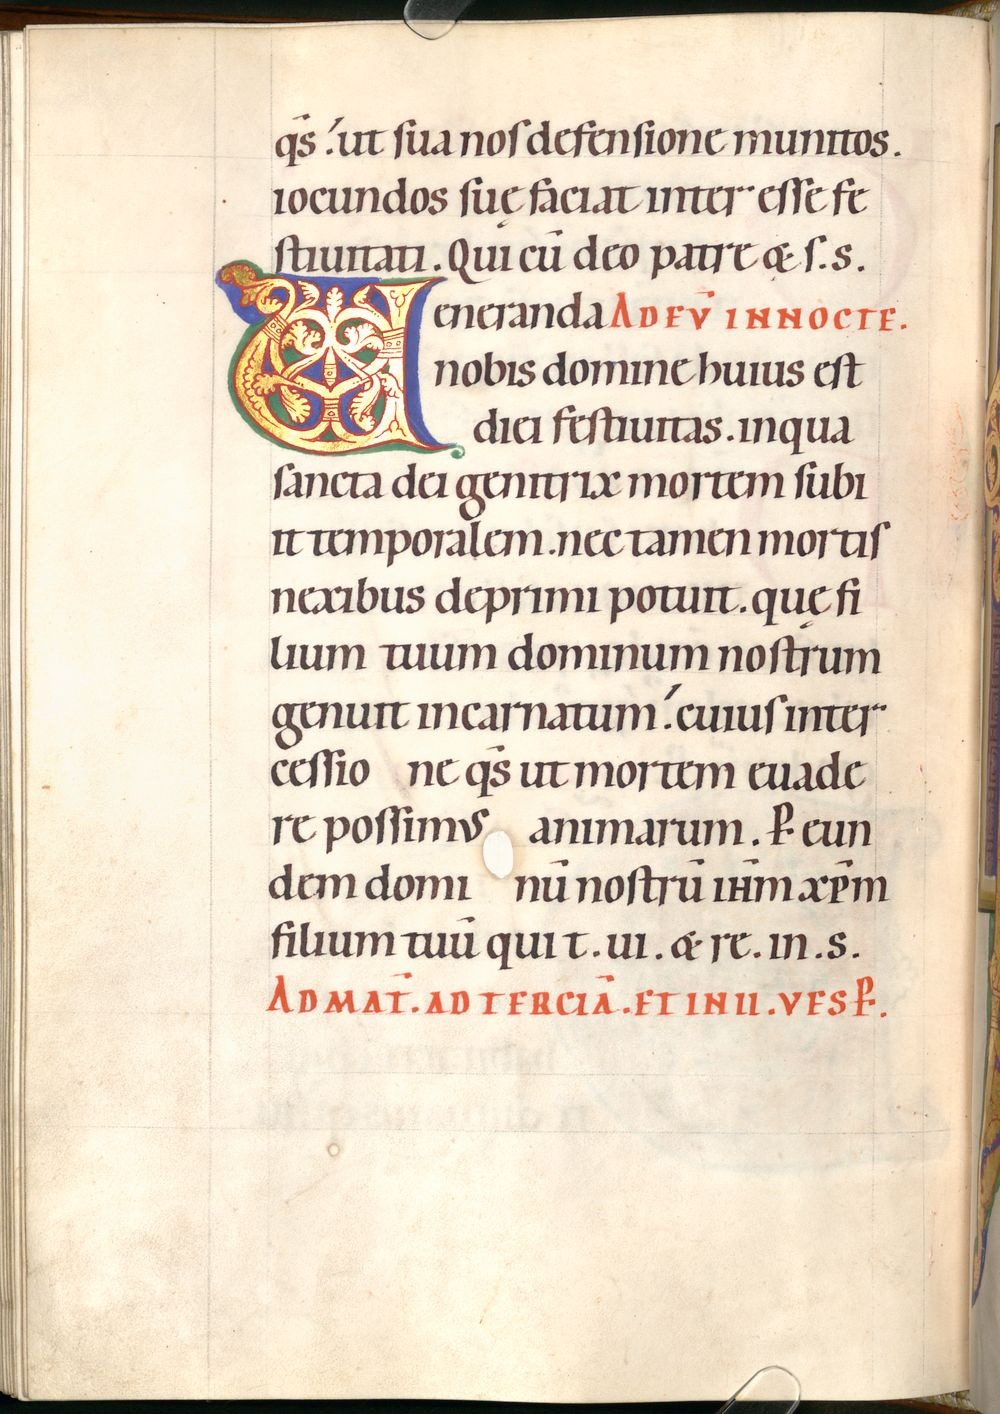 qs̄ ut sua nos defensione munitos.
iocundos suę faciat interesse fe
stiuitati. Qui cū deo patre & s.s.
Veneranda AD EṼ IN NOCTE.
nobis domine huius est
diei festiuitas. in qua
sancta dei genitrix mortem subi
it temporalem. nec tamen mortis
nexibus deprimi potuit. quę fi
lium tuum dominum nostrum
genuit incarnatum. cuius inter
cessio ne qs̄ ut mortem euade
re possimus animarum. P̄ eun
dem domi nū nostrū ihm̄ xp̄m
filium tuū qui t. ui. & re. in. s.
AD MAT̄. AD TERCIĀ. ET IN II. VESP̄.